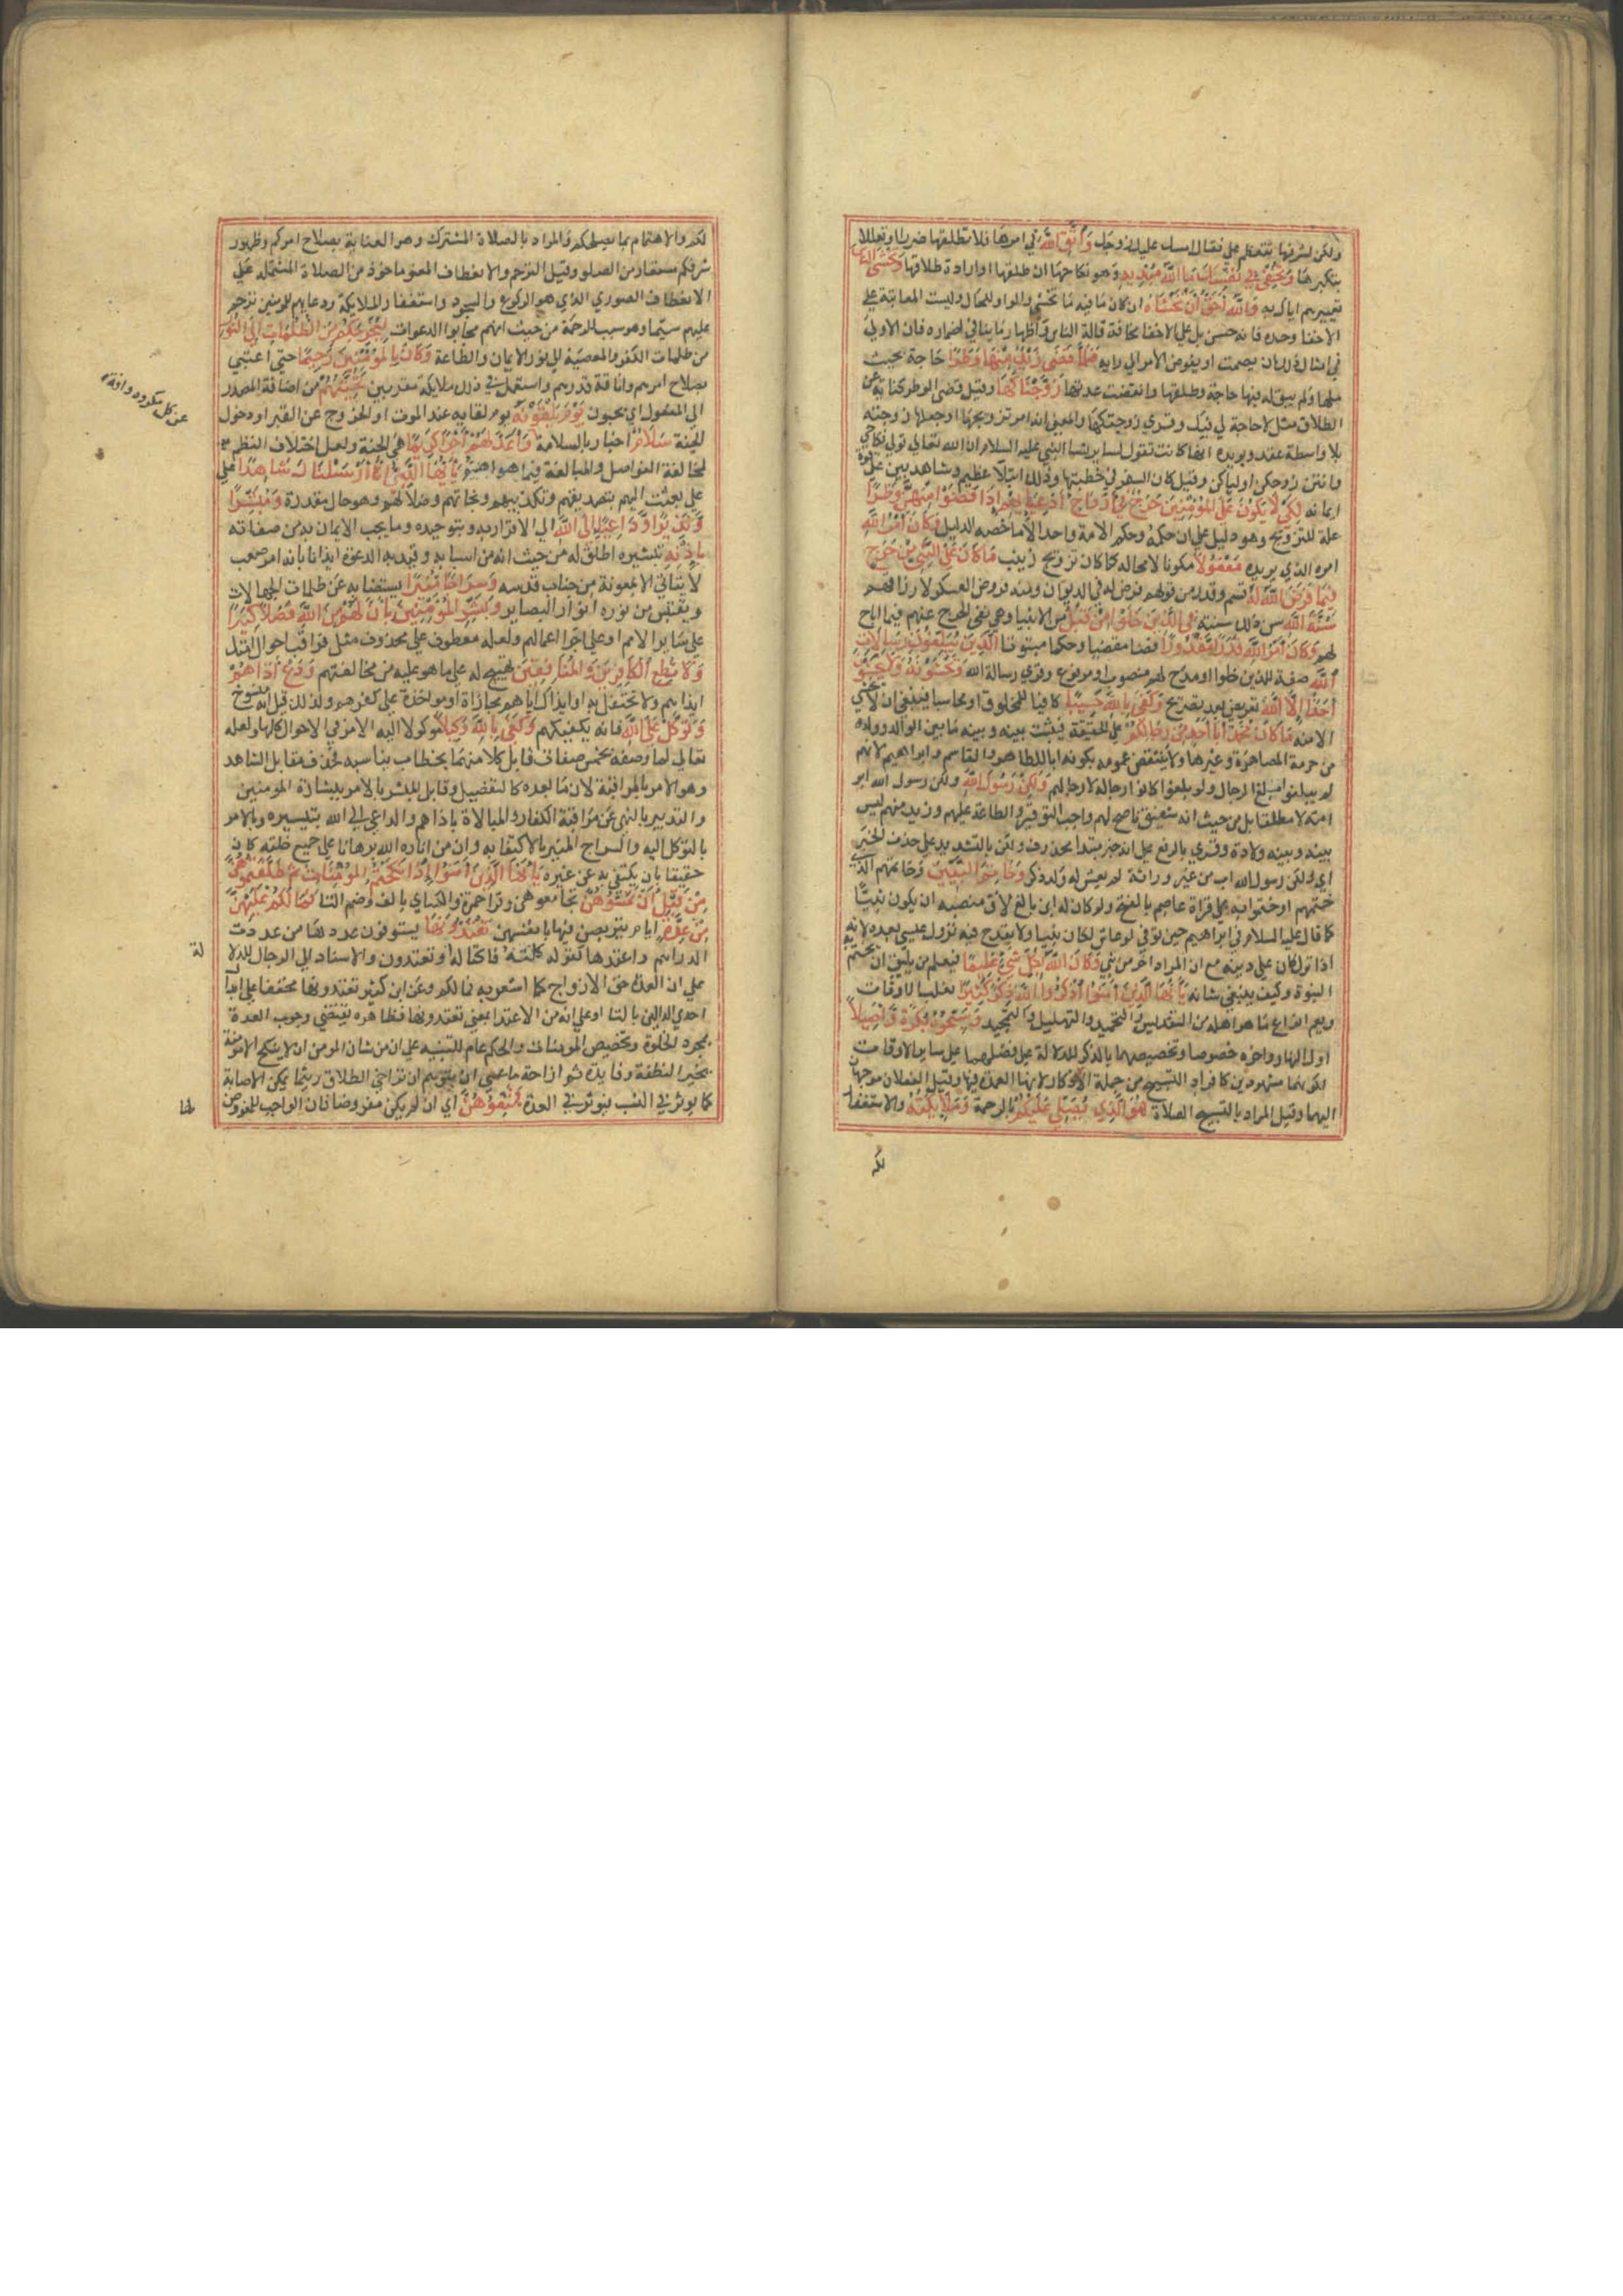 ولكن لشرفها تتعظم علي فقال امسك عليك زوجك وَاتَّقِ اللَّهَ في امرها فلا تطلقها ضرارا وتعللا
بتكبرها وَتُخْفِي فِي نَفْسِكَ مَا اللَّهُ مُبْدِيهِ وهو نكاحها ان طلقها او ارادة طلاقها وَتَخْشَى النَّاسَ
تعييرهم اياك به وَاللَّهُ أَحَقُّ أَنْ تَخْشَاهُ ان كان ما فيه ما تخشى والواو للحال وليست المعاتبة على
الاخفا وحده فانه حسن بل على الاخفا مخافة قالة الناس واظهار ما ينافي اضماره فان الاولى
في امثال ذلك ان يصمت او يفوض الامر الى رايه فَلَمَّا قَضَى زَيْدٌ مِنْهَا وَطَرًا حاجة بحيث
ملها ولم يبق له فيها حاجة وطلقها وانقضت عدتها زَوَّجْنَاكَهَا وقيل قضى الوطر كناية عن
الطلاق مثل لا حاجة لي فيك وقري زوجتكها والمعنى انه امر بتزويجها او جعلها زوجته
بلا واسطة عقد ويويده انها كانت تقول لساير نسا النبي عليه السلام ان الله تعالى تولى نكاحي
وانتن زوجكن اولياكن وقيل كان السفير في خطبتها وذلك ابتلا عظيم وشاهد بين على قوة
ايمانه لِكَيْ لَا يَكُونَ عَلَى الْمُؤْمِنِينَ حَرَجٌ فِي أَزْوَاجِ أَدْعِيَائِهِمْ إِذَا قَضَوْا مِنْهُنَّ وَطَرًا
علة للتزويج وهو دليل على ان حكمه وحكم الامة واحد الا ما خصه الدليل وَكَانَ أَمْرُ اللَّهِ
امره الذي يريده مَفْعُولًا مكونا لا محالة كما كان تزويج زينب مَا كَانَ عَلَى النَّبِيِّ مِنْ حَرَجٍ
فِيمَا فَرَضَ اللَّهُ لَهُ قسم وقدر من قولهم فرض له في الديوان ومنه فروض العسكر لارزاقهم
سُنَّةَ اللَّهِ سن ذلك سنة فِي الَّذِينَ خَلَوْا مِنْ قَبْلُ من الانبيا وهي نفي الحرج عنهم فيما اباح
لهم وَكَانَ أَمْرُ اللَّهِ قَدَرًا مَقْدُورًا قضا مقضيا وحكما مبتوتا الَّذِينَ يُبَلِّغُونَ رِسَالَاتِ
اللَّهِ صفة للذين خلوا او مدح لهم منصوب او مرفوع وقري رسالة الله وَيَخْشَوْنَهُ وَلَا يَخْشَوْنَ
أَحَدًا إِلَّا اللَّهَ تعريض بعد تصريح وَكَفَى بِاللَّهِ حَسِيبًا كافيا للمخاوف او محاسبا فينبغي ان لا يخشى
الا منه مَا كَانَ مُحَمَّدٌ أَبَا أَحَدٍ مِنْ رِجَالِكُمْ على الحقيقة فيثبت بينه وبينه ما بين الوالد وولده
من حرمة المصاهرة وغيرها ولا ينتقض عمومه بكونه ابا للطاهر والقاسم وابراهيم لانهم
لم يبلغوا مبلغ الرجال ولو بلغوا كانوا رجاله لا رجالهم وَلَكِنْ رَسُولَ اللَّهِ ولكن رسول الله ابو
امته لا مطلقا بل من حيث انه شفيق ناصح لهم واجب التوقير والطاعة عليهم وزيد منهم ليس
بينه وبينه ولادة وقري بالرفع على انه خبر مبتدا محذوف ولكن بالتشديد على حذف الخبر
اي ولكن رسول الله اب من غير وراثة لم يعش له ولد ذكر وَخَاتَمَ النَّبِيِّينَ وخاتمهم الذي
ختمهم او ختموا به على قراة عاصم بالفتح ولو كان له ابن بالغ لاق منصبه ان يكون نبيا
كما قال عليه السلام في ابراهيم حين توفي لو عاش لكان نبيا ولا يقدح فيه نزول عيسى بعده لانه
اذا نزل كان على دينه مع ان المراد اخر من نبي وَكَانَ اللَّهُ بِكُلِّ شَيْءٍ عَلِيمًا فيعلم من يليق ان يختم
النبوة وكيف ينبغي شانه يَا أَيُّهَا الَّذِينَ آمَنُوا اذْكُرُوا اللَّهَ ذِكْرًا كَثِيرًا يغلب الاوقات
ويعم انواع ما هو اهله من التقديس والتحميد والتهليل والتمجيد وَسَبِّحُوهُ بُكْرَةً وَأَصِيلًا
اول النهار واخره خصوصا وتخصيصهما بالذكر للدلالة على فضلهما على ساير الاوقات
لكونهما مشهودين كافراد التسبيح من جملة الاذكار لانها العمدة فيها وقيل الفعلان موجهان
اليهما وقيل المراد بالتسبيح الصلاة هُوَ الَّذِي يُصَلِّي عَلَيْكُمْ بالرحمة وَمَلَائِكَتُهُ والاستغفار
لكم
لكم والاهتمام بما يصلحكم والمراد بالصلاة المشترك وهو العناية بصلاح امركم وظهور
شرفكم مستعار من الصلو وقيل الترحم والانعطاف المعنوي ماخوذ من الصلاة المشتملة على
الانعطاف الصوري الذي هو الركوع والسجود واستغفار الملايكة ودعايهم للمومنين ترحم
عليهم سيما وهو سبب للرحمة من حيث انهم مجابوا الدعوات لِيُخْرِجَكُمْ مِنَ الظُّلُمَاتِ إِلَى النُّورِ
من ظلمات الكفر والمعصية الى نور الايمان والطاعة وَكَانَ بِالْمُؤْمِنِينَ رَحِيمًا حتى اعتنى
بصلاح امرهم وانافة قدرهم واستعمل في ذلك ملايكته مقربين تَحِيَّتُهُمْ من اضافة المصدر
الى المفعول اي يحيون يَوْمَ يَلْقَوْنَهُ يوم لقايه عند الموت او الخروج عن القبر او دخول
الجنة سَلَامٌ اخبار بالسلامة وَأَعَدَّ لَهُمْ أَجْرًا كَرِيمًا هي الجنة ولعل اختلاف النظم
لمحافظة الفواصل والمبالغة فيما هو اهم يَا أَيُّهَا النَّبِيُّ إِنَّا أَرْسَلْنَاكَ شَاهِدًا على
على بعثت اليهم بتصديقهم وتكذيبهم ونجاتهم وضلالهم وهو حال مقدرة وَمُبَشِّرًا
وَنَذِيرًا وَدَاعِيًا إِلَى اللَّهِ الى الاقرار به وبتوحيده وما يجب الايمان به من صفاته
بِإِذْنِهِ بتيسيره اطلق له من حيث انه من اسبابه وقيد به الدعوة ايذانا بانه امر صعب
لا يتاتى الا بمعونة من جناب قدسه وَسِرَاجًا مُنِيرًا يستضا به عن ظلمات الجهالات
ويقتبس من نوره انوار البصاير وَبَشِّرِ الْمُؤْمِنِينَ بِأَنَّ لَهُمْ مِنَ اللَّهِ فَضْلًا كَبِيرًا
على ساير الامم او على اجر اعمالهم ولعله معطوف على محذوف مثل فراقب احوال امتك
وَلَا تُطِعِ الْكَافِرِينَ وَالْمُنَافِقِينَ تهييج له على ما هو عليه من مخالفتهم وَدَعْ أَذَاهُمْ
ايذاهم ولا تحتفل به او ايذاك اياهم مجازاة او مواخذة على كفرهم ولذلك قيل انه منسوخ
وَتَوَكَّلْ عَلَى اللَّهِ فانه يكفيكهم وَكَفَى بِاللَّهِ وَكِيلًا موكولا اليه الامر في الاحوال كلها ولعله
تعالى لما وصفه بخمس صفات قابل كلا منها بخطاب يناسبه فحذف مقابل الشاهد
وهو الامر بالمراقبة لان ما بعده كالتفصيل وقابل المبشر بالامر ببشارة المومنين
والنذير بالنهي عن مراقبة الكفار والمبالاة باذاهم والداعي الى الله بتيسيره وبالامر
بالتوكل اليه والسراج المنير بالاكتفا به وان من اناره الله برهانا على جميع خلقه كان
حقيقا بان يكتفى به عن غيره يَا أَيُّهَا الَّذِينَ آمَنُوا إِذَا نَكَحْتُمُ الْمُؤْمِنَاتِ ثُمَّ طَلَّقْتُمُوهُنَّ
مِنْ قَبْلِ أَنْ تَمَسُّوهُنَّ تجامعوهن وقرا حمزة والكساي بالف وضم التا فَمَا لَكُمْ عَلَيْهِنَّ
مِنْ عِدَّةٍ ايام يتربصن فيها بانفسهن تَعْتَدُّونَهَا يستوفون عددها من عددت
الدراهم واعتدها كقوله كلته فاكتاله او تعتدون والاسناد الى الرجال للدلالة
على ان العدة حق الازواج كما اشعر به فما لكم وعن ابن كثير تعتدونها مخففا على ابدال
احدى الدالين بالتا او على انه من الاعتدا بمعنى تعتدونها فظاهره يقتضي وجوب العدة
بمجرد الخلوة وتخصيص المومنات والحكم عام للتنبيه على ان من شان المومن ان لا ينكح الا مومنة
تخيرا لنطفته وفايدة ثم ازاحة ما عسى ان يتوهم ان تراخي الطلاق ريثما يمكن الاصابة
كما يوثر في النسب يوثر في العدة فَمَتِّعُوهُنَّ اي ان لم يكن مفروضا فان الواجب للمفروض
لها
عن كل مكروه وافة
لة